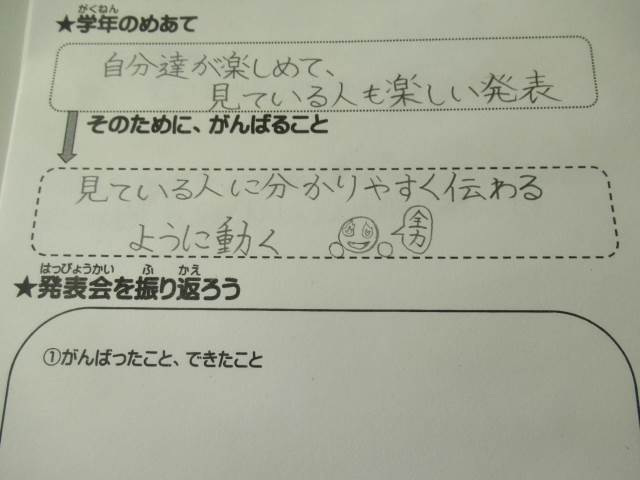 がくねん
★学年のめあて
自分達が楽しめて、
見ている人も楽しい発表
そのために、がんばること
見ている人に分かりやすく伝わる
ように動く
全力
はっぴょうかい ふ かえ
★発表会を振り返ろう
①がんばったこと、できたこと